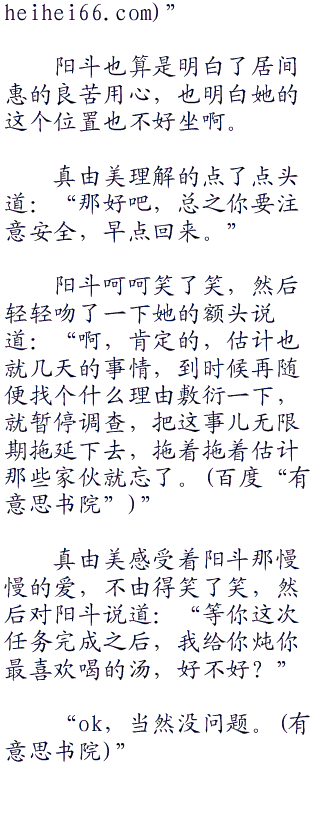 heihei66.com)”
阳斗也算是明白了居间
惠的良苦用心，也明白她的
这个位置也不好坐啊。
真由美理解的点了点头
道：“那好吧，总之你要注
意安全，早点回来。”
阳斗呵呵笑了笑，然后
轻轻吻了一下她的额头说
道：“啊，肯定的，估计也
就几天的事情，到时候再随
便找个什么理由敷衍一下，
就暂停调查，把这事儿无限
期拖延下去，拖着拖着估计
那些家伙就忘了。(百度“有
意思书院”)”
真由美感受着阳斗那慢
慢的爱，不由得笑了笑，然
后对阳斗说道：“等你这次
任务完成之后，我给你炖你
最喜欢喝的汤，好不好？”
“ok，当然没问题。(有
意思书院)”